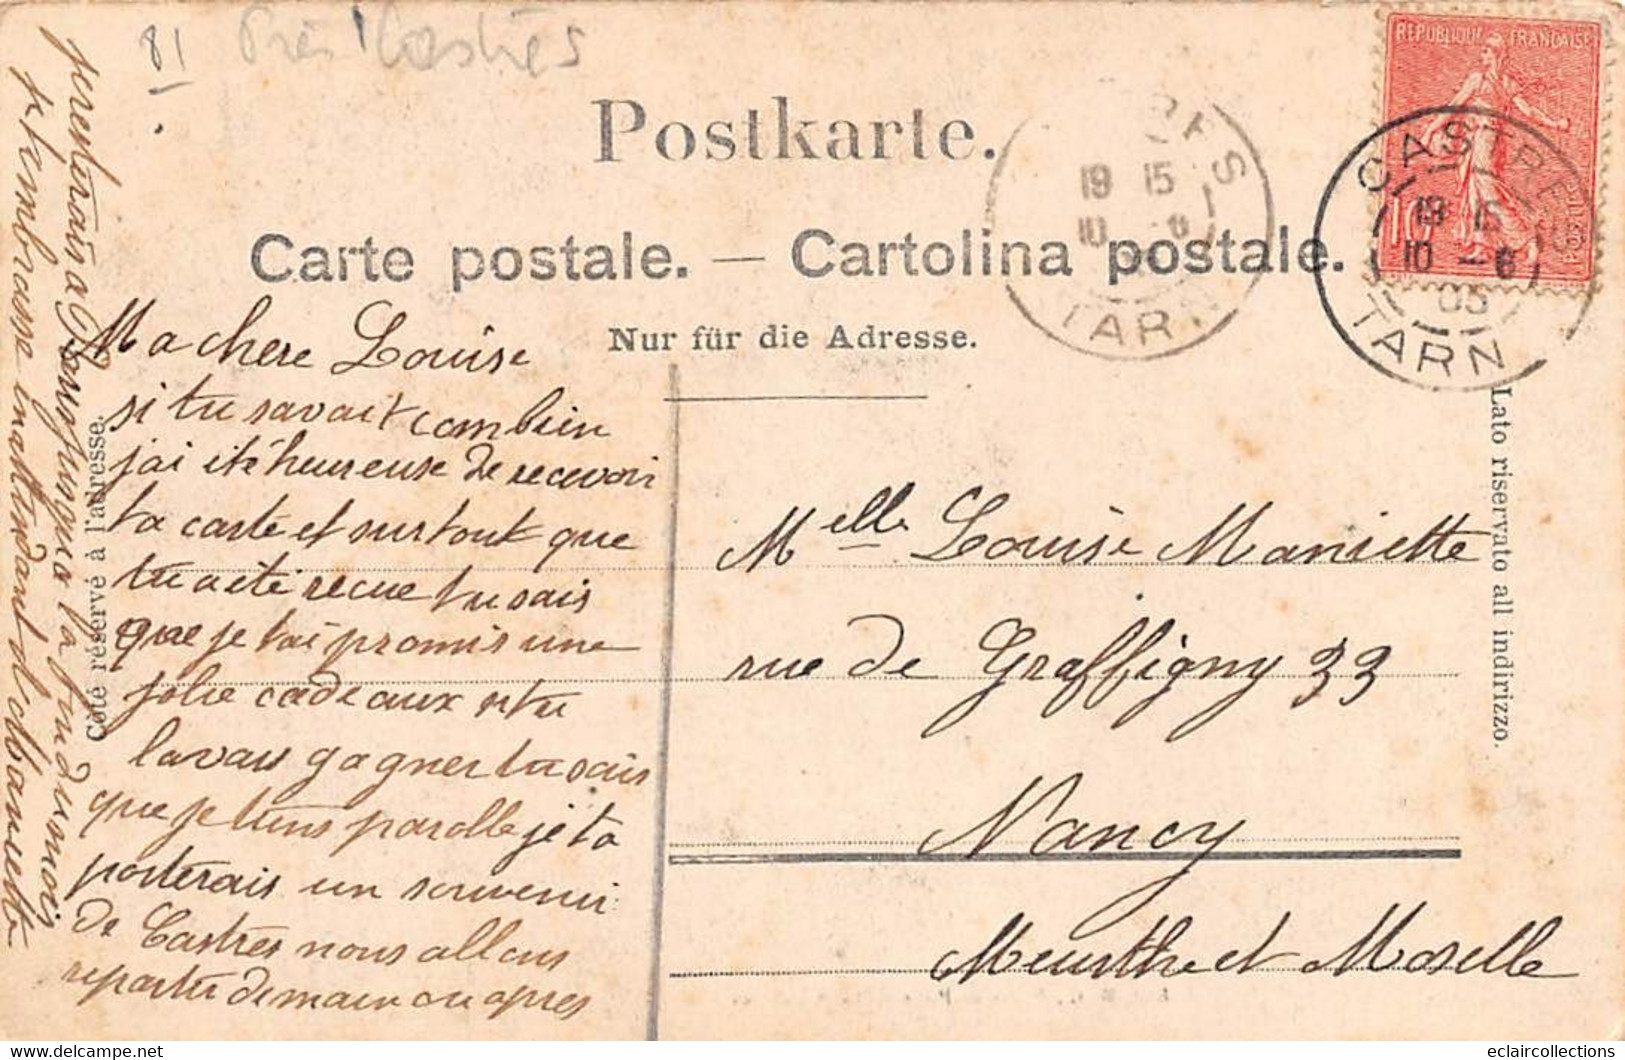 81 Près Castres
Postkarte.
Carte postale. — Cartolina postale.
Nur für die Adresse.
REPUBLIQUE FRANÇAISE
10
CASTRES
19 15
10 -6
05
TARN
RES
19 15
10 6
TARN
Côté réservé à l'adresse.
Lato riservato all indirizzo.
Ma chere Louise
si tu savait combien
jai ité heureuse de recevoir
ta carte et surtout que
tu a été recue tu sais
que je tai promis une
jolie cadeaux si tu
lavais gagner tu sais
que je tiens parolle je ta
porterais un souvenir
de Castres nous allons
repartir demain ou apres
je resterais a jusqua la fin du mois
je t'embrasse en attendant
Melle Louise Mariette
rue de Graffigny 33
Nancy
Meurthe et Moselle
eclaircollections @ delcampe.net